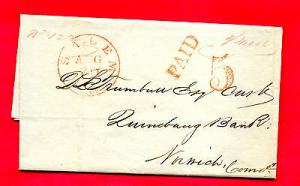 SALEM
AUG
PAID
5
D. L. Trumbull Esq Cash
Quinebaug Bank
Norwich, Connt